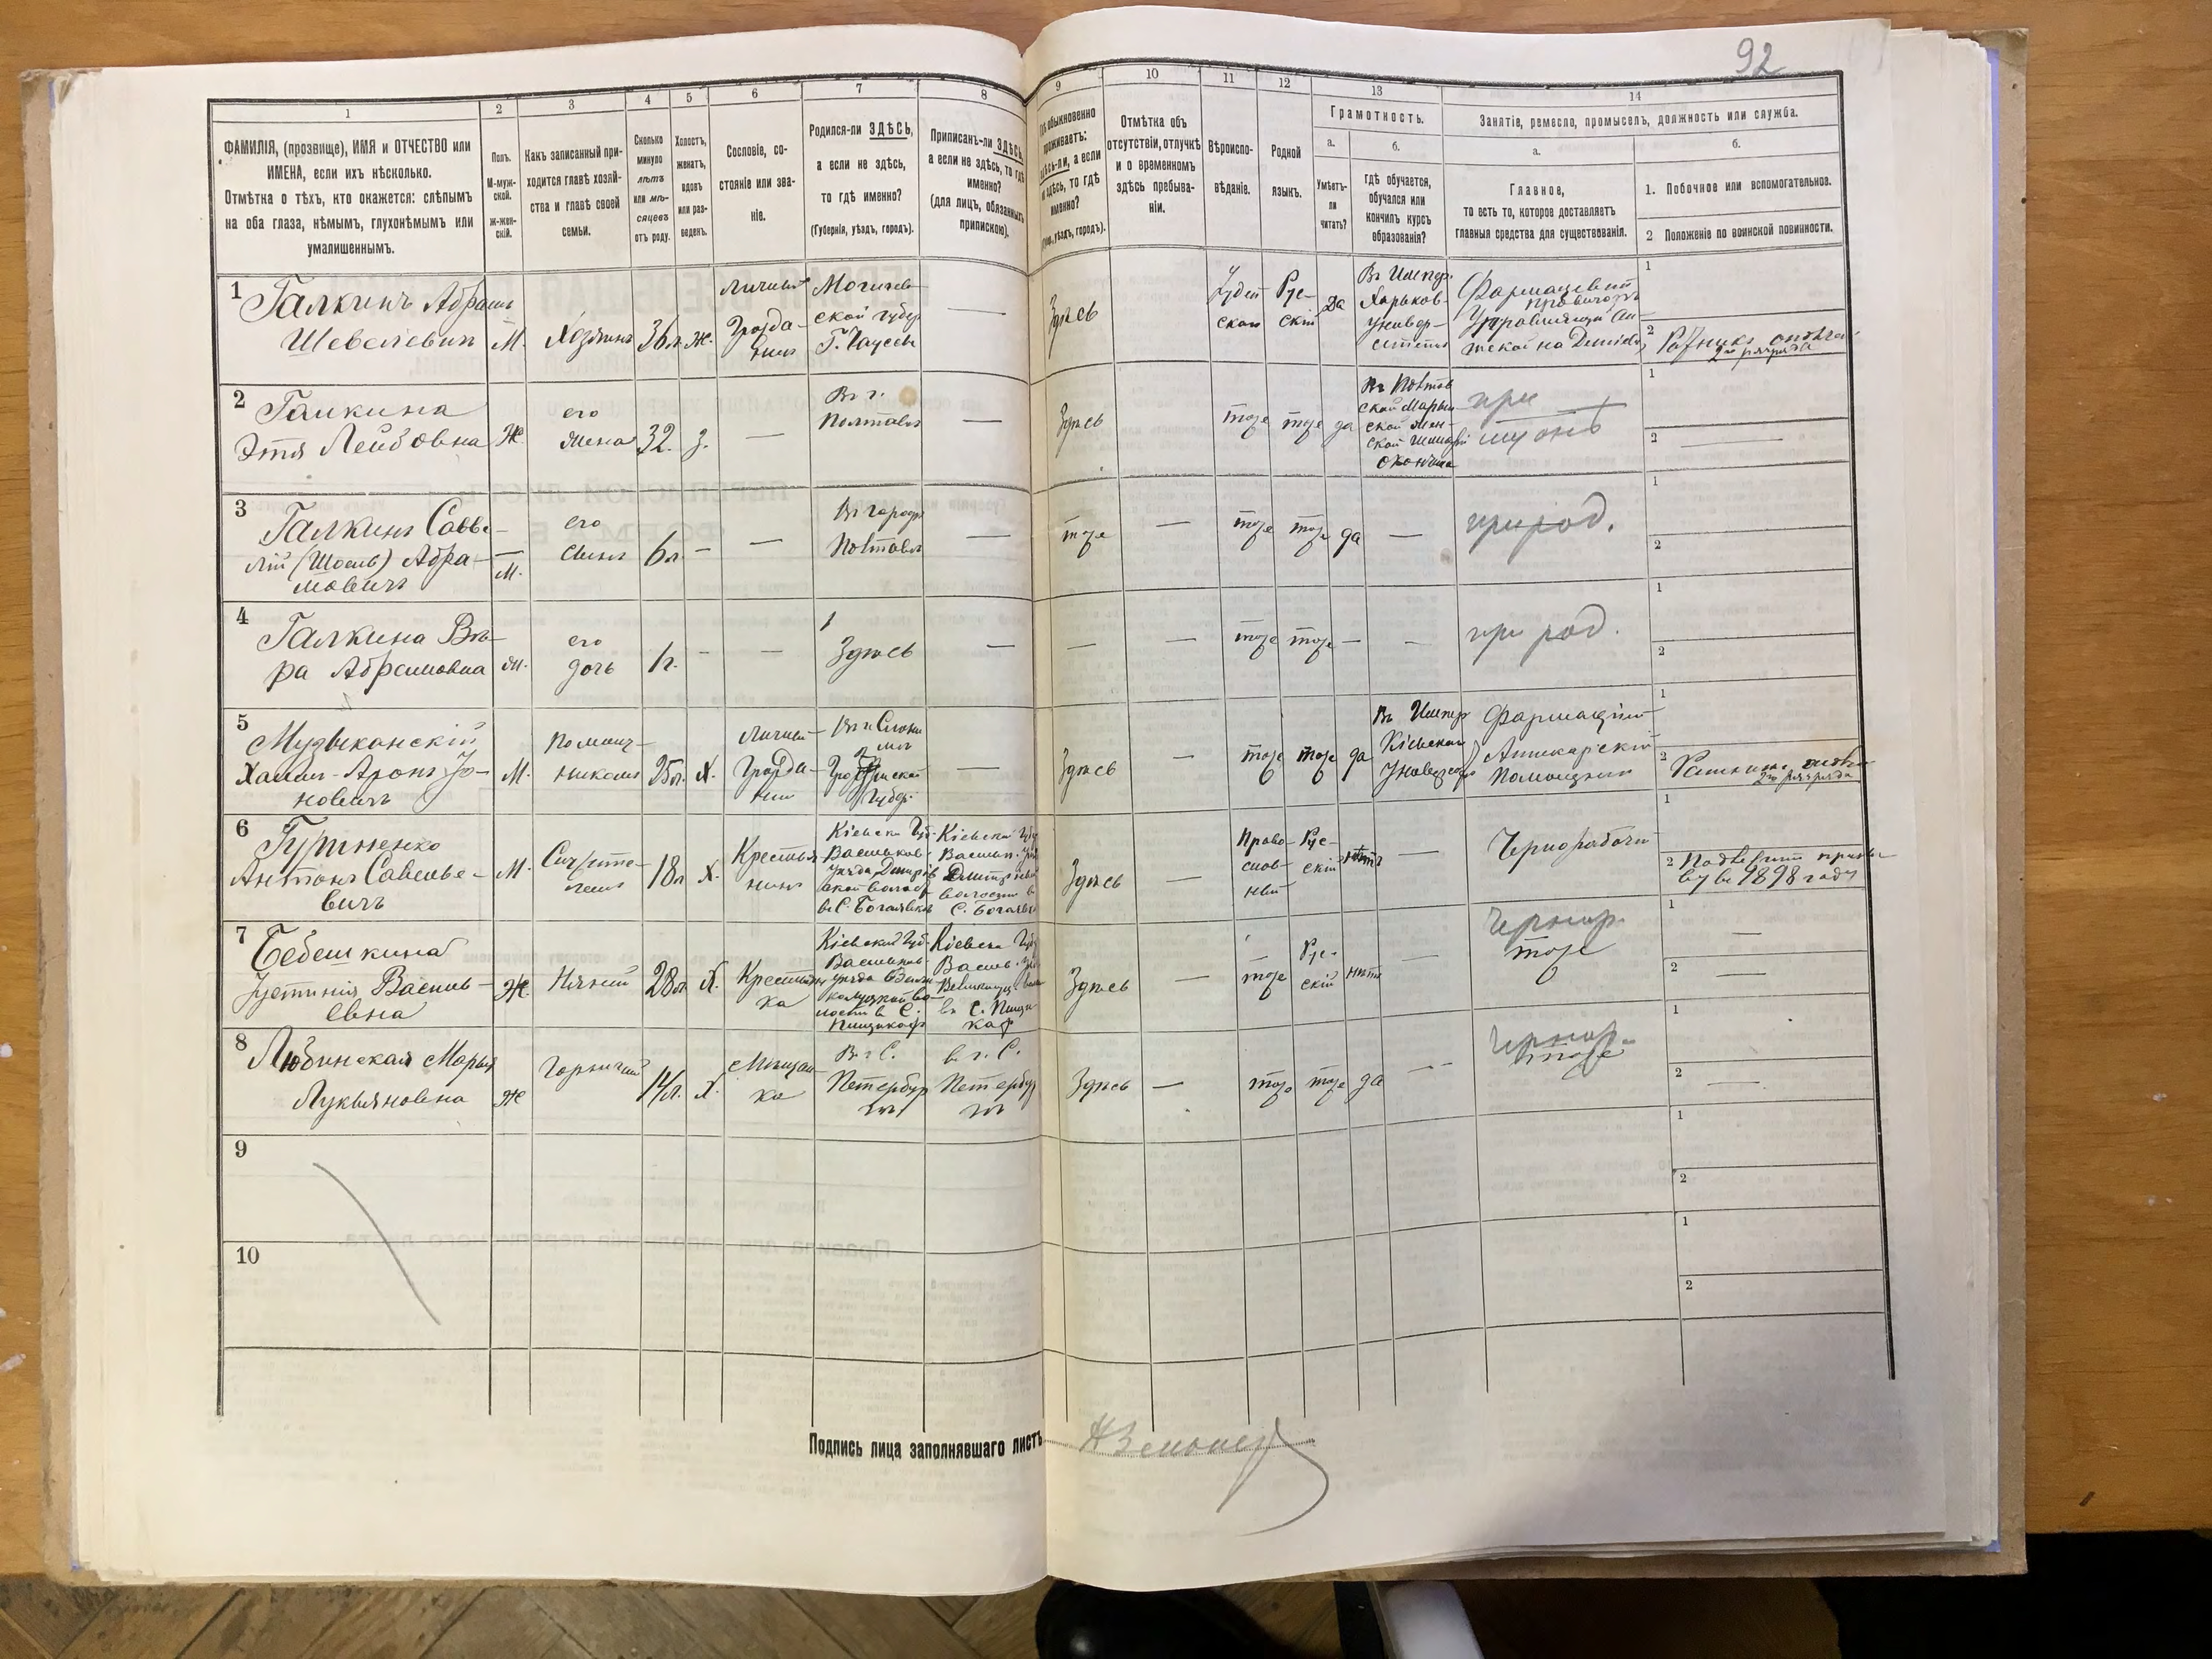 92
1
2
3
4
5
6
7
8
9
10
11
12
13
14
ФАМИЛІЯ, (прозвище), ИМЯ и ОТЧЕСТВО или
ИМЕНА, если ихъ нѣсколько.
Отмѣтка о тѣхъ, кто окажется: слѣпымъ
на оба глаза, нѣмымъ, глухонѣмымъ или
умалишеннымъ.
Полъ.
М-муж-
ской.
ж-жен-
скій.
Какъ записанный при-
ходится главѣ хозяй-
ства и главѣ своей
семьи.
Сколько
минуло
лѣтъ
или мѣ-
сяцевъ
отъ роду.
Холостъ,
женатъ,
вдовъ
или раз-
веденъ.
Сословіе, со-
стояніе или зва-
ніе.
Родился-ли ЗДѢСЬ,
а если не здѣсь,
то гдѣ именно?
(Губернія, уѣздъ, городъ).
Приписанъ-ли ЗДѢСЬ,
а если не здѣсь, то гдѣ
именно?
(для лицъ, обязанныхъ
припискою).
обыкновенно
проживаетъ:
здѣсь-ли, а если
не здѣсь, то гдѣ
именно?
уѣздъ, городъ).
Отмѣтка объ
отсутствіи, отлучкѣ
и о временномъ
здѣсь пребыва-
ніи.
Вѣроиспо-
вѣданіе.
Родной
языкъ.
Грамотность.
а.
Умѣетъ-
ли
читать?
б.
гдѣ обучается,
обучался или
кончилъ курсъ
образованія?
Занятіе, ремесло, промыселъ, должность или служба.
а.
Главное,
то есть то, которое доставляетъ
главныя средства для существованія.
б.
1. Побочное или вспомогательное.
2 Положеніе по воинской повинности.
1
Галкинъ Абрамъ
Шевелевичъ
М.
Хозяинъ
36 л.
ж.
Личный
Гражда-
нинъ
Могилев-
ской губер
Г. Чаусы
—
Здѣсь
Іудей
ской
Рус-
скій
Да
Въ Импер.
Харьков-
Универ-
ситетѣ
Фармацевтъ
провизоръ
Управляющій Ап-
1
2
2го разряда
2
Галкина
Этя Лейбовна
Ж.
его
жена
32.
з.
—
Въ г.
Полтавѣ
—
Здѣсь
тоже
тоже
да
Въ Полтав
ской Марьин-
ской Жен-
ской Гимназіи
окончила
при
1
2
—
3
Галкинъ Саве-
лій (Шоель) Абра-
мовичъ
М.
его
сынъ
6 л
—
—
Въ городѣ
Полтавѣ
—
тоже
—
тоже
тоже
да
—
при род.
1
2
4
Галкина Вѣ-
ра Абрамовна
ж.
его
дочь
1 г.
-
—
Здѣсь
—
—
—
тоже
тоже
—
—
при род.
1
2
5
Музыканскій
Хаим-Аронъ Іо-
новичъ
М.
Помощ-
никомъ
25 л.
Х.
Личный
Гражда-
нинъ
Въ г. Слони
мѣ
Гродненской
Губер.
—
Здѣсь
—
тоже
тоже
да
Въ Импер
Кіевском
Университ
Фармацевт
Аптекарскій
Помощникъ
1
2
2го разряда
6
Антонъ Савелье-
вичъ
М.
Служите-
лемъ
18 л
Х.
Крестья-
нинъ
Кіевской Губ.
Васильков-
уѣзда Дмитров
ской волости
въ С.
Кіевской Губ
Васильк.
Дмитровской
волости в
С.
Здѣсь
—
Право-
слав-
ный
Рус-
скій
нѣтъ
—
Чернорабочій
1
2 Подлежитъ призы
ву въ 1898 году
7
Бебешкина
Устинія Василь-
евна
Ж.
Няней
28 л.
Х.
Крестьян
ка
Кіевской Губ.
Васильков-
уѣзда
Кіевской Губ
Василь.
въ С.
Здѣсь
—
тоже
Рус-
скій
нѣтъ
—
тоже
1
—
2
—
8
Любинская Марья
Лукьяновна
Ж
Горничной
14 л.
Х.
Мѣщан-
ка
В г. С.
Петербур
гѣ
в г. С.
Петербур
гѣ
Здѣсь
—
тоже
тоже
да
—
тоже
1
2
—
9
1
2
10
1
2
Подпись лица заполнявшаго листъ